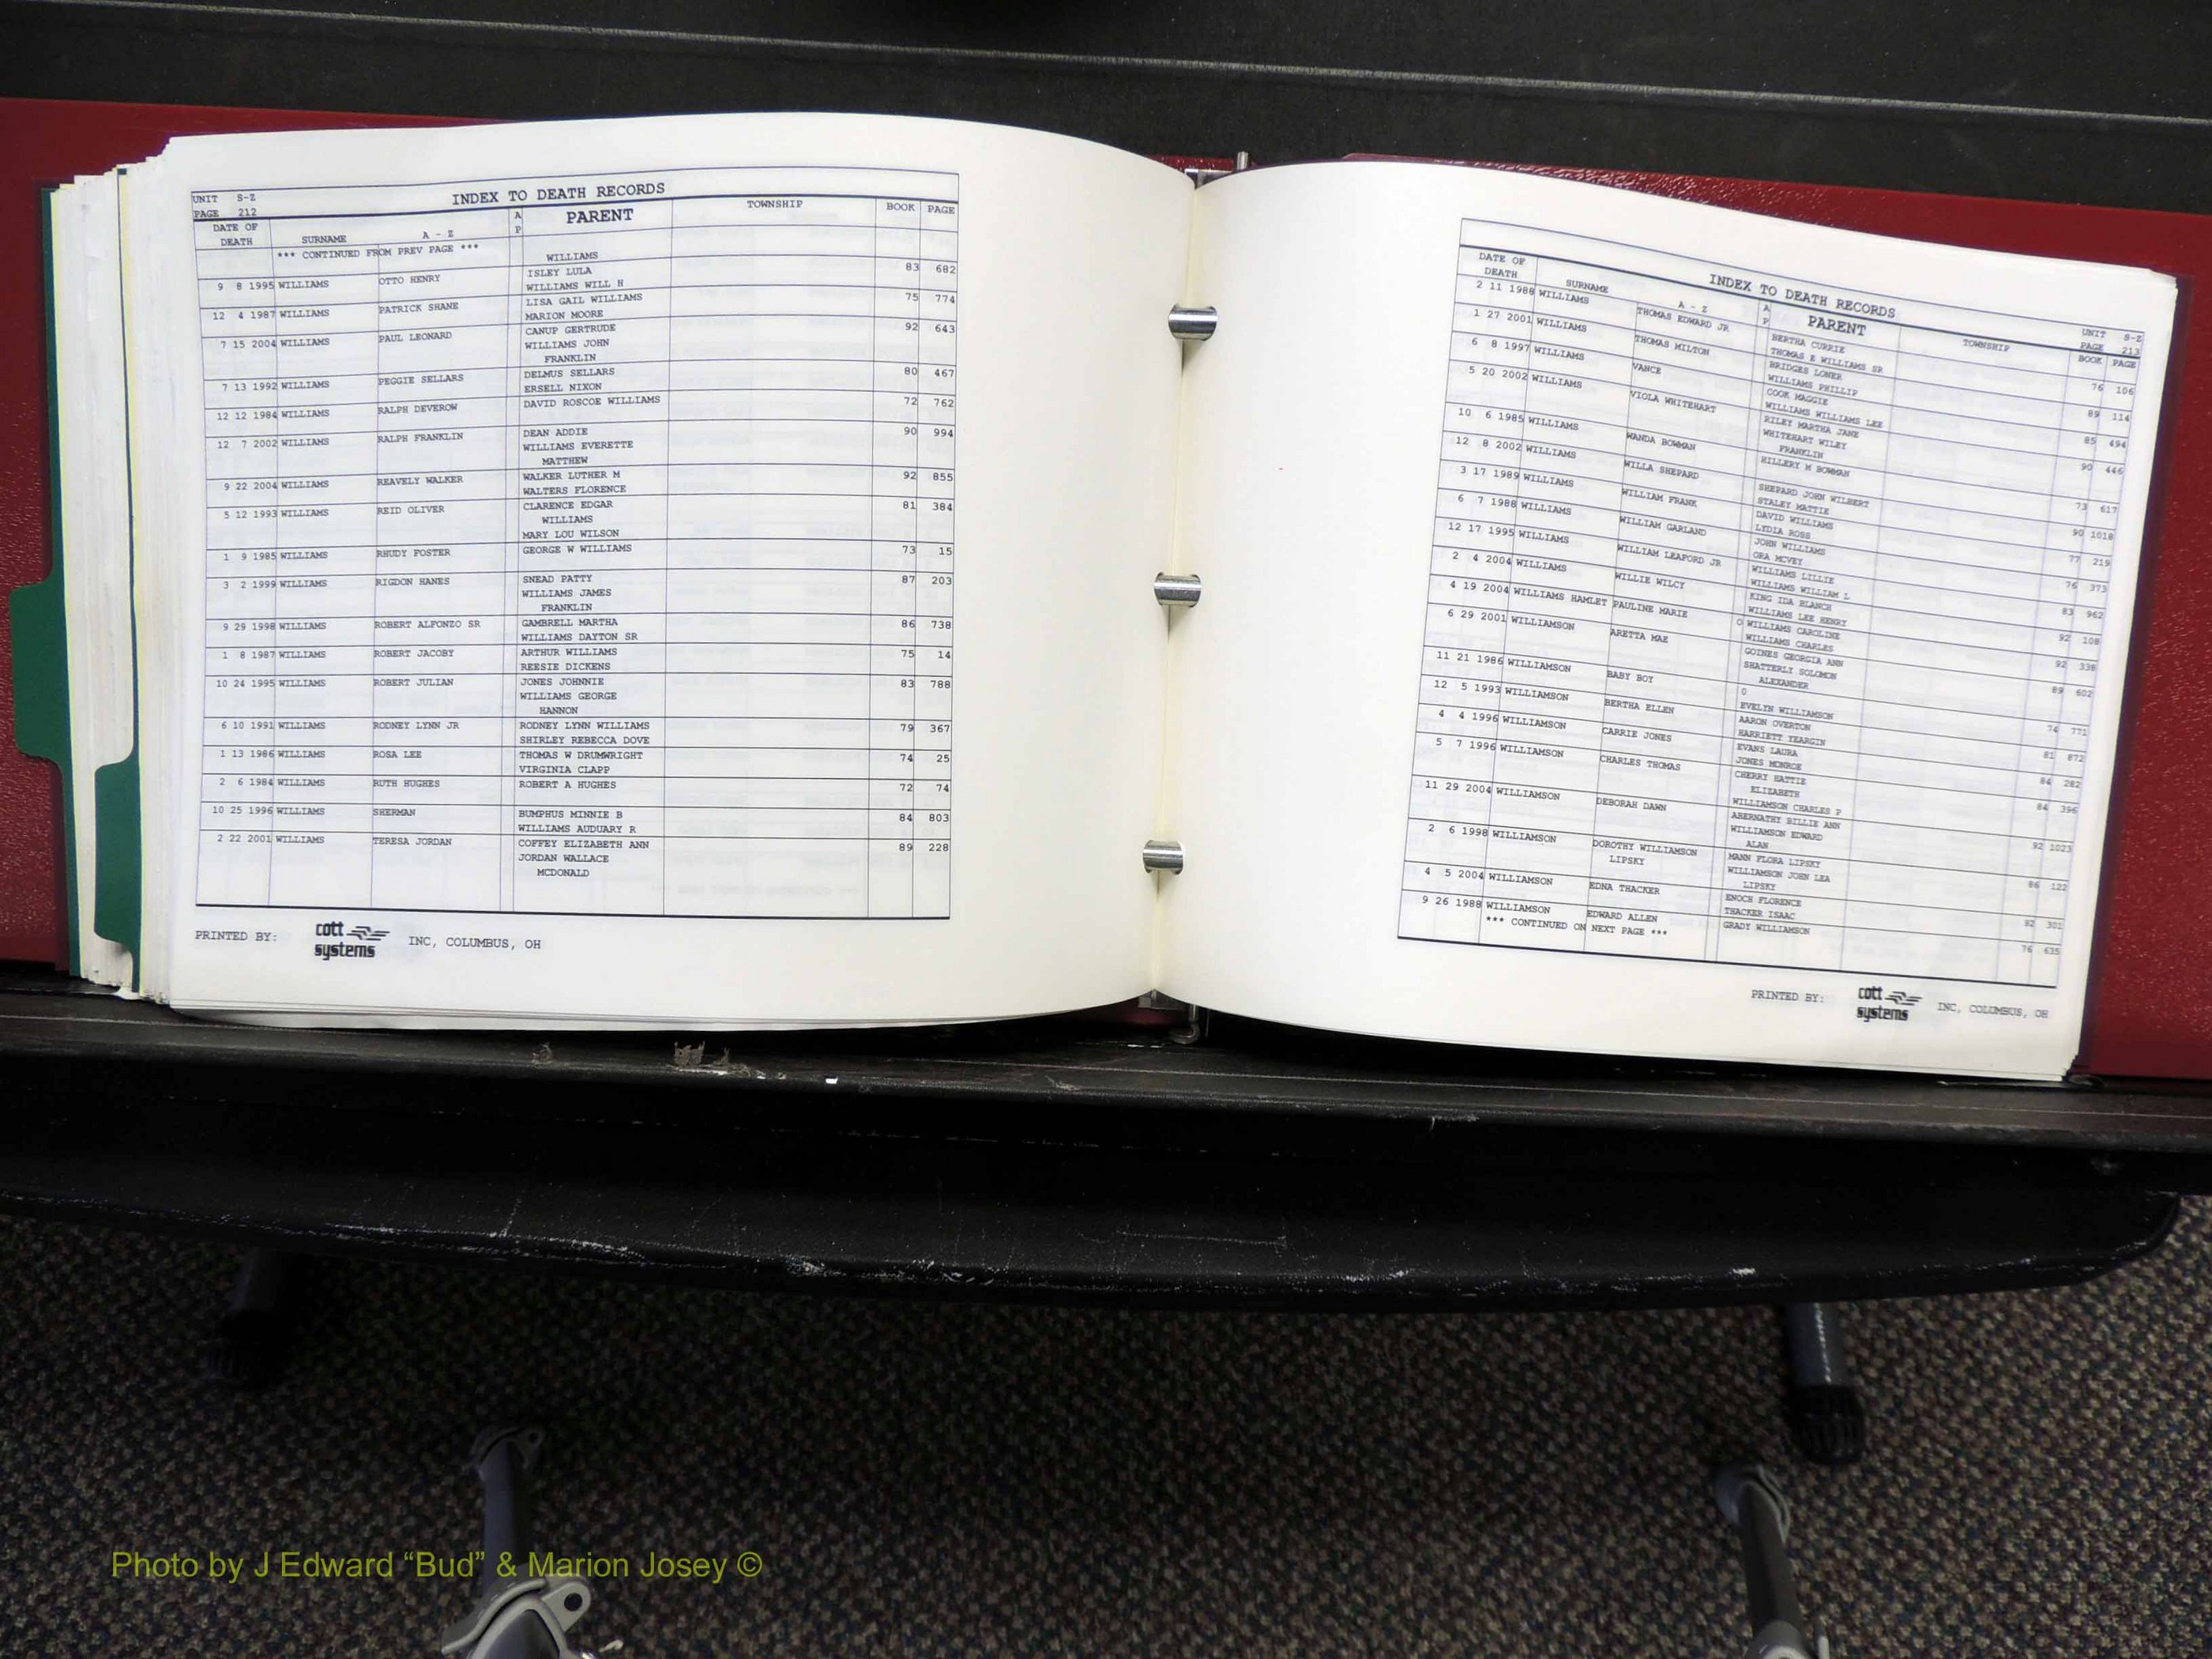 UNIT S-Z
PAGE 212
INDEX TO DEATH RECORDS
DATE OF DEATH SURNAME A - Z A P PARENT TOWNSHIP BOOK PAGE
*** CONTINUED FROM PREV PAGE ***
WILLIAMS
9 8 1995 WILLIAMS OTTO HENRY ISLEY LULA 83 682
WILLIAMS WILL H
12 4 1987 WILLIAMS PATRICK SHANE LISA GAIL WILLIAMS 75 774
MARION MOORE
7 15 2004 WILLIAMS PAUL LEONARD CANUP GERTRUDE 92 643
WILLIAMS JOHN
FRANKLIN
7 13 1992 WILLIAMS PEGGIE SELLARS DELMUS SELLARS 80 467
ERSELL NIXON
12 12 1984 WILLIAMS RALPH DEVEROW DAVID ROSCOE WILLIAMS 72 762
12 7 2002 WILLIAMS RALPH FRANKLIN DEAN ADDIE 90 994
WILLIAMS EVERETTE
MATTHEW
9 22 2004 WILLIAMS REAVELY WALKER WALKER LUTHER M 92 855
WALTERS FLORENCE
5 12 1993 WILLIAMS REID OLIVER CLARENCE EDGAR 81 384
WILLIAMS
MARY LOU WILSON
1 9 1985 WILLIAMS RHUDY FOSTER GEORGE W WILLIAMS 73 15
3 2 1999 WILLIAMS RIGDON HANES SNEAD PATTY 87 203
WILLIAMS JAMES
FRANKLIN
9 29 1998 WILLIAMS ROBERT ALFONZO SR GAMBRELL MARTHA 86 738
WILLIAMS DAYTON SR
1 8 1987 WILLIAMS ROBERT JACOBY ARTHUR WILLIAMS 75 14
REESIE DICKENS
10 24 1995 WILLIAMS ROBERT JULIAN JONES JOHNNIE 83 788
WILLIAMS GEORGE
HANNON
6 10 1991 WILLIAMS RODNEY LYNN JR RODNEY LYNN WILLIAMS 79 367
SHIRLEY REBECCA DOVE
1 13 1986 WILLIAMS ROSA LEE THOMAS W DRUMWRIGHT 74 25
VIRGINIA CLAPP
2 6 1984 WILLIAMS RUTH HUGHES ROBERT A HUGHES 72 74
10 25 1996 WILLIAMS SHERMAN BUMPHUS MINNIE B 84 803
WILLIAMS AUDUARY R
2 22 2001 WILLIAMS TERESA JORDAN COFFEY ELIZABETH ANN 89 228
JORDAN WALLACE
MCDONALD
PRINTED BY: cott systems INC, COLUMBUS, OH
INDEX TO DEATH RECORDS
UNIT S-Z
PAGE 213
DATE OF DEATH SURNAME A - Z A P PARENT TOWNSHIP BOOK PAGE
2 11 1988 WILLIAMS THOMAS EDWARD JR BERTHA CURRIE 76 106
THOMAS E WILLIAMS SR
1 27 2001 WILLIAMS THOMAS MILTON BRIDGES LONER 89 114
WILLIAMS PHILLIP
6 8 1997 WILLIAMS VANCE COOK MAGGIE 85 494
WILLIAMS WILLIAMS LEE
5 20 2002 WILLIAMS VIOLA WHITEHART RILEY MARTHA JANE 90 446
WHITEHART WILEY
FRANKLIN
10 6 1985 WILLIAMS WANDA BOWMAN HILLERY M BOWMAN 73 617
12 8 2002 WILLIAMS WILLA SHEPARD SHEPARD JOHN WILBERT 90 1018
STALEY MATTIE
3 17 1989 WILLIAMS WILLIAM FRANK DAVID WILLIAMS 77 219
LYDIA ROSS
6 7 1988 WILLIAMS WILLIAM GARLAND JOHN WILLIAMS 76 373
ORA MCVEY
12 17 1995 WILLIAMS WILLIAM LEAFORD JR WILLIAMS LILLIE 83 962
WILLIAMS WILLIAM L
2 4 2004 WILLIAMS WILLIE WILCY KING IDA BLANCH 92 108
WILLIAMS LEE HENRY
4 19 2004 WILLIAMS HAMLET PAULINE MARIE O WILLIAMS CAROLINE 92 338
WILLIAMS CHARLES
6 29 2001 WILLIAMSON ARETTA MAE GOINES GEORGIA ANN 89 602
SHATTERLY SOLOMON
ALEXANDER
11 21 1986 WILLIAMSON BABY BOY O EVELYN WILLIAMSON 74 771
12 5 1993 WILLIAMSON BERTHA ELLEN AARON OVERTON 81 872
HARRIETT YEARGIN
4 4 1996 WILLIAMSON CARRIE JONES EVANS LAURA 84 282
JONES MONROE
5 7 1996 WILLIAMSON CHARLES THOMAS CHERRY HATTIE 84 396
ELIZABETH
WILLIAMSON CHARLES P
11 29 2004 WILLIAMSON DEBORAH DAWN ABERNATHY BILLIE ANN 92 1023
WILLIAMSON EDWARD
ALAN
2 6 1998 WILLIAMSON DOROTHY WILLIAMSON LIPSKY MANN FLORA LIPSKY 86 122
WILLIAMSON JOHN LEA
LIPSKY
4 5 2004 WILLIAMSON EDNA THACKER ENOCH FLORENCE 92 301
THACKER ISAAC
9 26 1988 WILLIAMSON EDWARD ALLEN GRADY WILLIAMSON 76 635
*** CONTINUED ON NEXT PAGE ***
PRINTED BY: cott systems INC, COLUMBUS, OH
Photo by J Edward “Bud” & Marion Josey ©